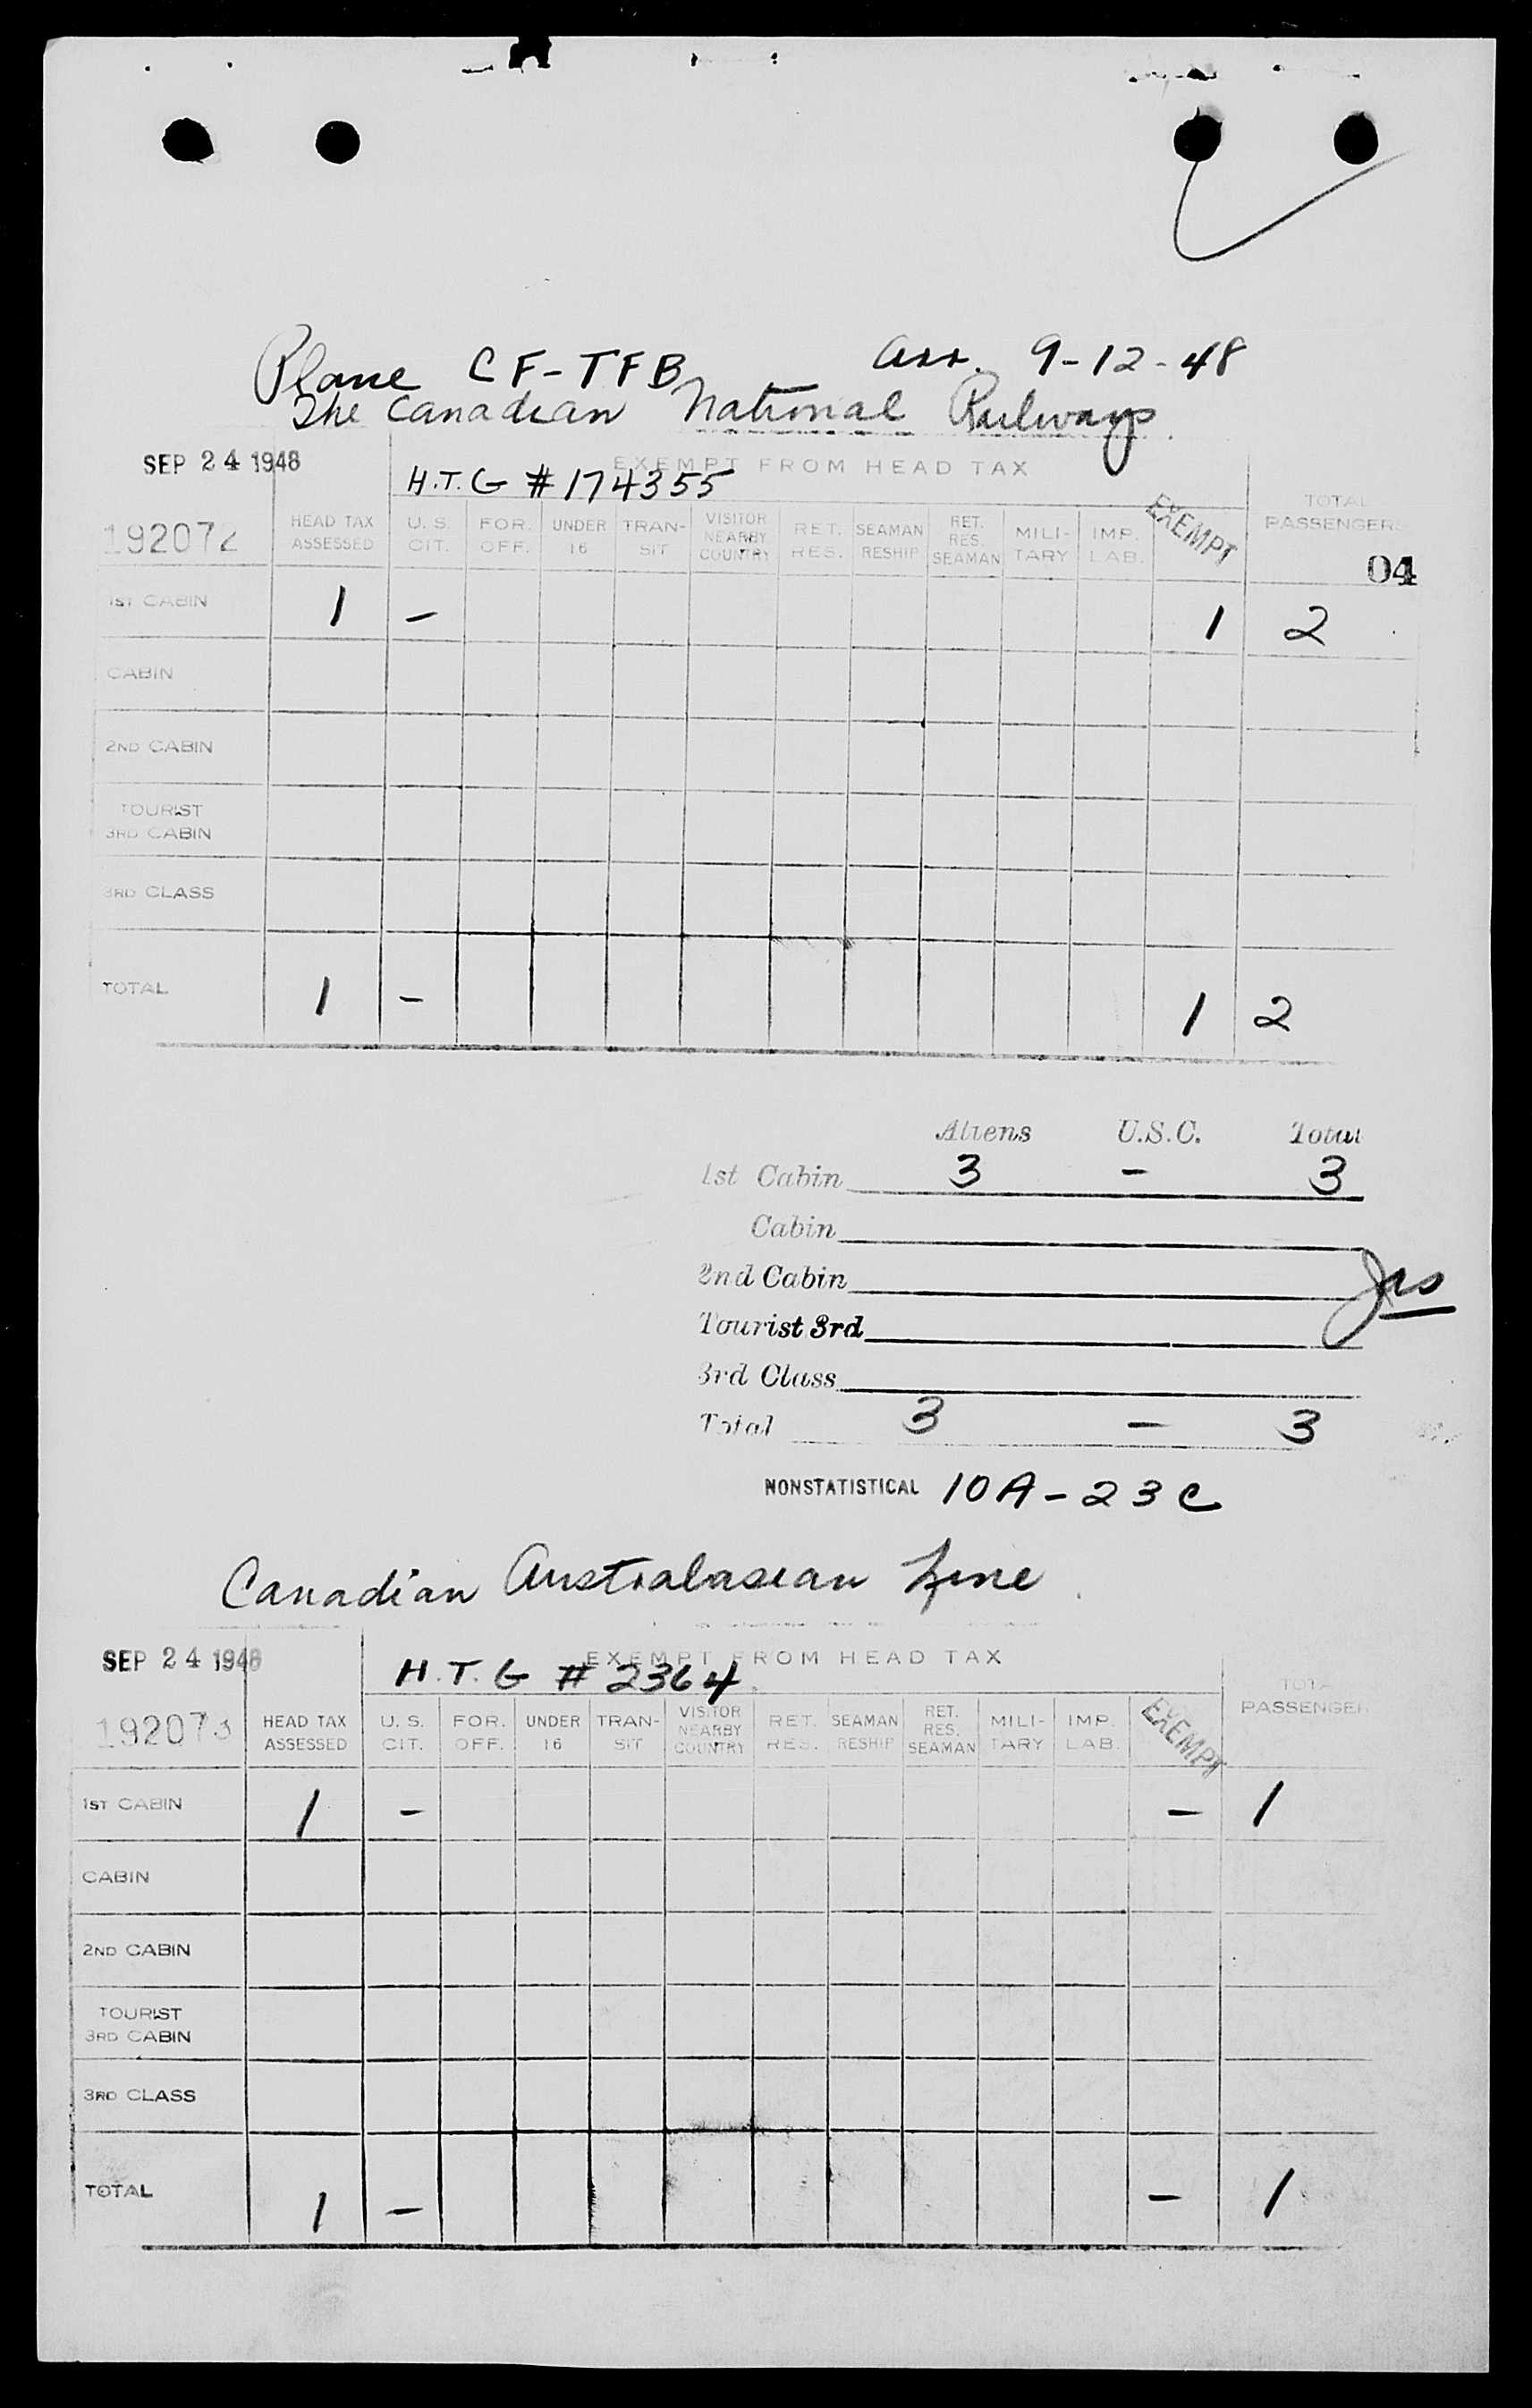 Plane CF-TFB arr. 9-12-48
The Canadian National Railways
SEP 24 1948
EXEMPT FROM HEAD TAX
H.T.G #174355
192072
HEAD TAX ASSESSED
U. S. CIT.
FOR. OFF.
UNDER 16
TRAN- SIT
VISITOR NEARBY COUNTRY
RET. RES.
SEAMAN RESHIP
RET. RES. SEAMAN
MILI- TARY
IMP. LAB.
EXEMPT
TOTAL PASSENGERS
04
1ST CABIN 1 - 1 2
CABIN
2ND CABIN
TOURIST
3RD CABIN
3RD CLASS
TOTAL 1 - 1 2
Aliens U.S.C. Total
1st Cabin 3 - 3
Cabin
2nd Cabin
Tourist 3rd
3rd Class
Total 3 - 3
NONSTATISTICAL 10A-23C
Canadian Australasian Line
SEP 24 1948
EXEMPT FROM HEAD TAX
H.T.G #2364
192073
HEAD TAX ASSESSED
U. S. CIT.
FOR. OFF.
UNDER 16
TRAN- SIT
VISITOR NEARBY COUNTRY
RET. RES.
SEAMAN RESHIP
RET. RES. SEAMAN
MILI- TARY
IMP. LAB.
EXEMPT
TOTAL PASSENGER
1ST CABIN 1 - - 1
CABIN
2ND CABIN
TOURIST
3RD CABIN
3RD CLASS
TOTAL 1 - - 1